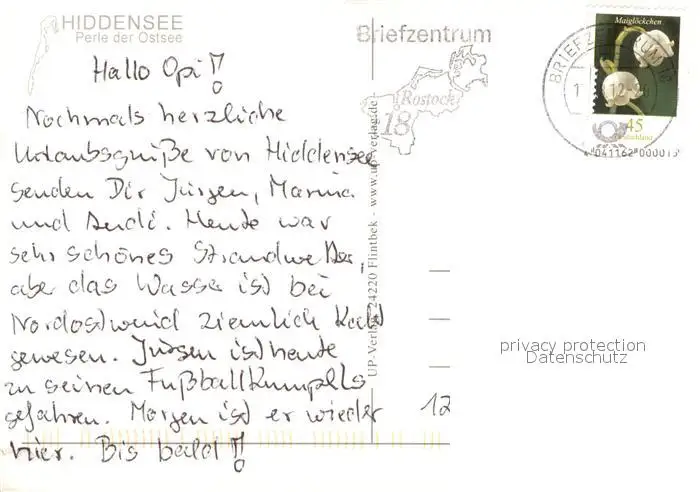 HIDDENSEE
Perle der Ostsee
Hallo Opi!
Nochmals herzliche
Urlaubsgrüße von Hiddensee
senden Dir Jürgen, Marina
und Andi. Heute war
sehr schönes Strandwetter,
aber das Wasser ist bei
Nordostwind ziemlich kalt
gewesen. Jürgen ist heute
zu seinen Fußballkumpels
gefahren. Morgen ist er wieder
hier. Bis bald!
UP-Verlag 24220 Flintbek - www.up-verlag.de
Briefzentrum
Rostock
18
BRIEFZENTRUM 18
Maiglöckchen
45
Deutschland
privacy protection
Datenschutz
12